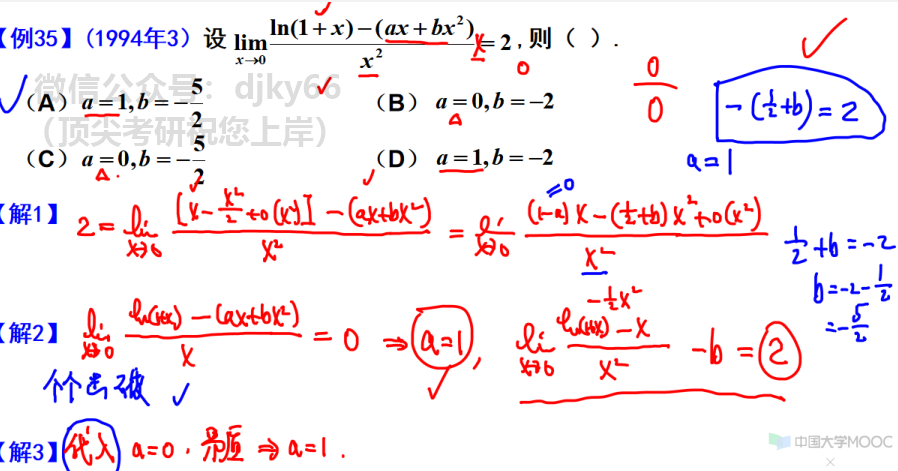 【例35】(1994年3) 设 lim x→0 [ln(1+x)-(ax+bx²)]/x² = 2, 则 ( ).
x
0
0/0
-(1/2+b)=2
a=1
微信公众号：djky66
(A) a=1, b=-5/2
(B) a=0, b=-2
(顶尖考研祝您上岸)
(C) a=0, b=-5/2
(D) a=1, b=-2
【解1】 2 = lim x→0 {[x - x²/2 + o(x²)] - (ax+bx²)}/x² = lim x→0 [(1-a)x - (1/2+b)x² + o(x²)]/x²
=0
1/2+b=-2
b=-2-1/2
=-5/2
【解2】 lim x→0 [ln(1+x)-(ax+bx²)]/x = 0 ⇒ a=1, lim x→0 [ln(1+x)-x]/x² - b = 2
-1/2x²
个个击破
【解3】 代入 a=0, 矛盾 ⇒ a=1.
中国大学MOOC